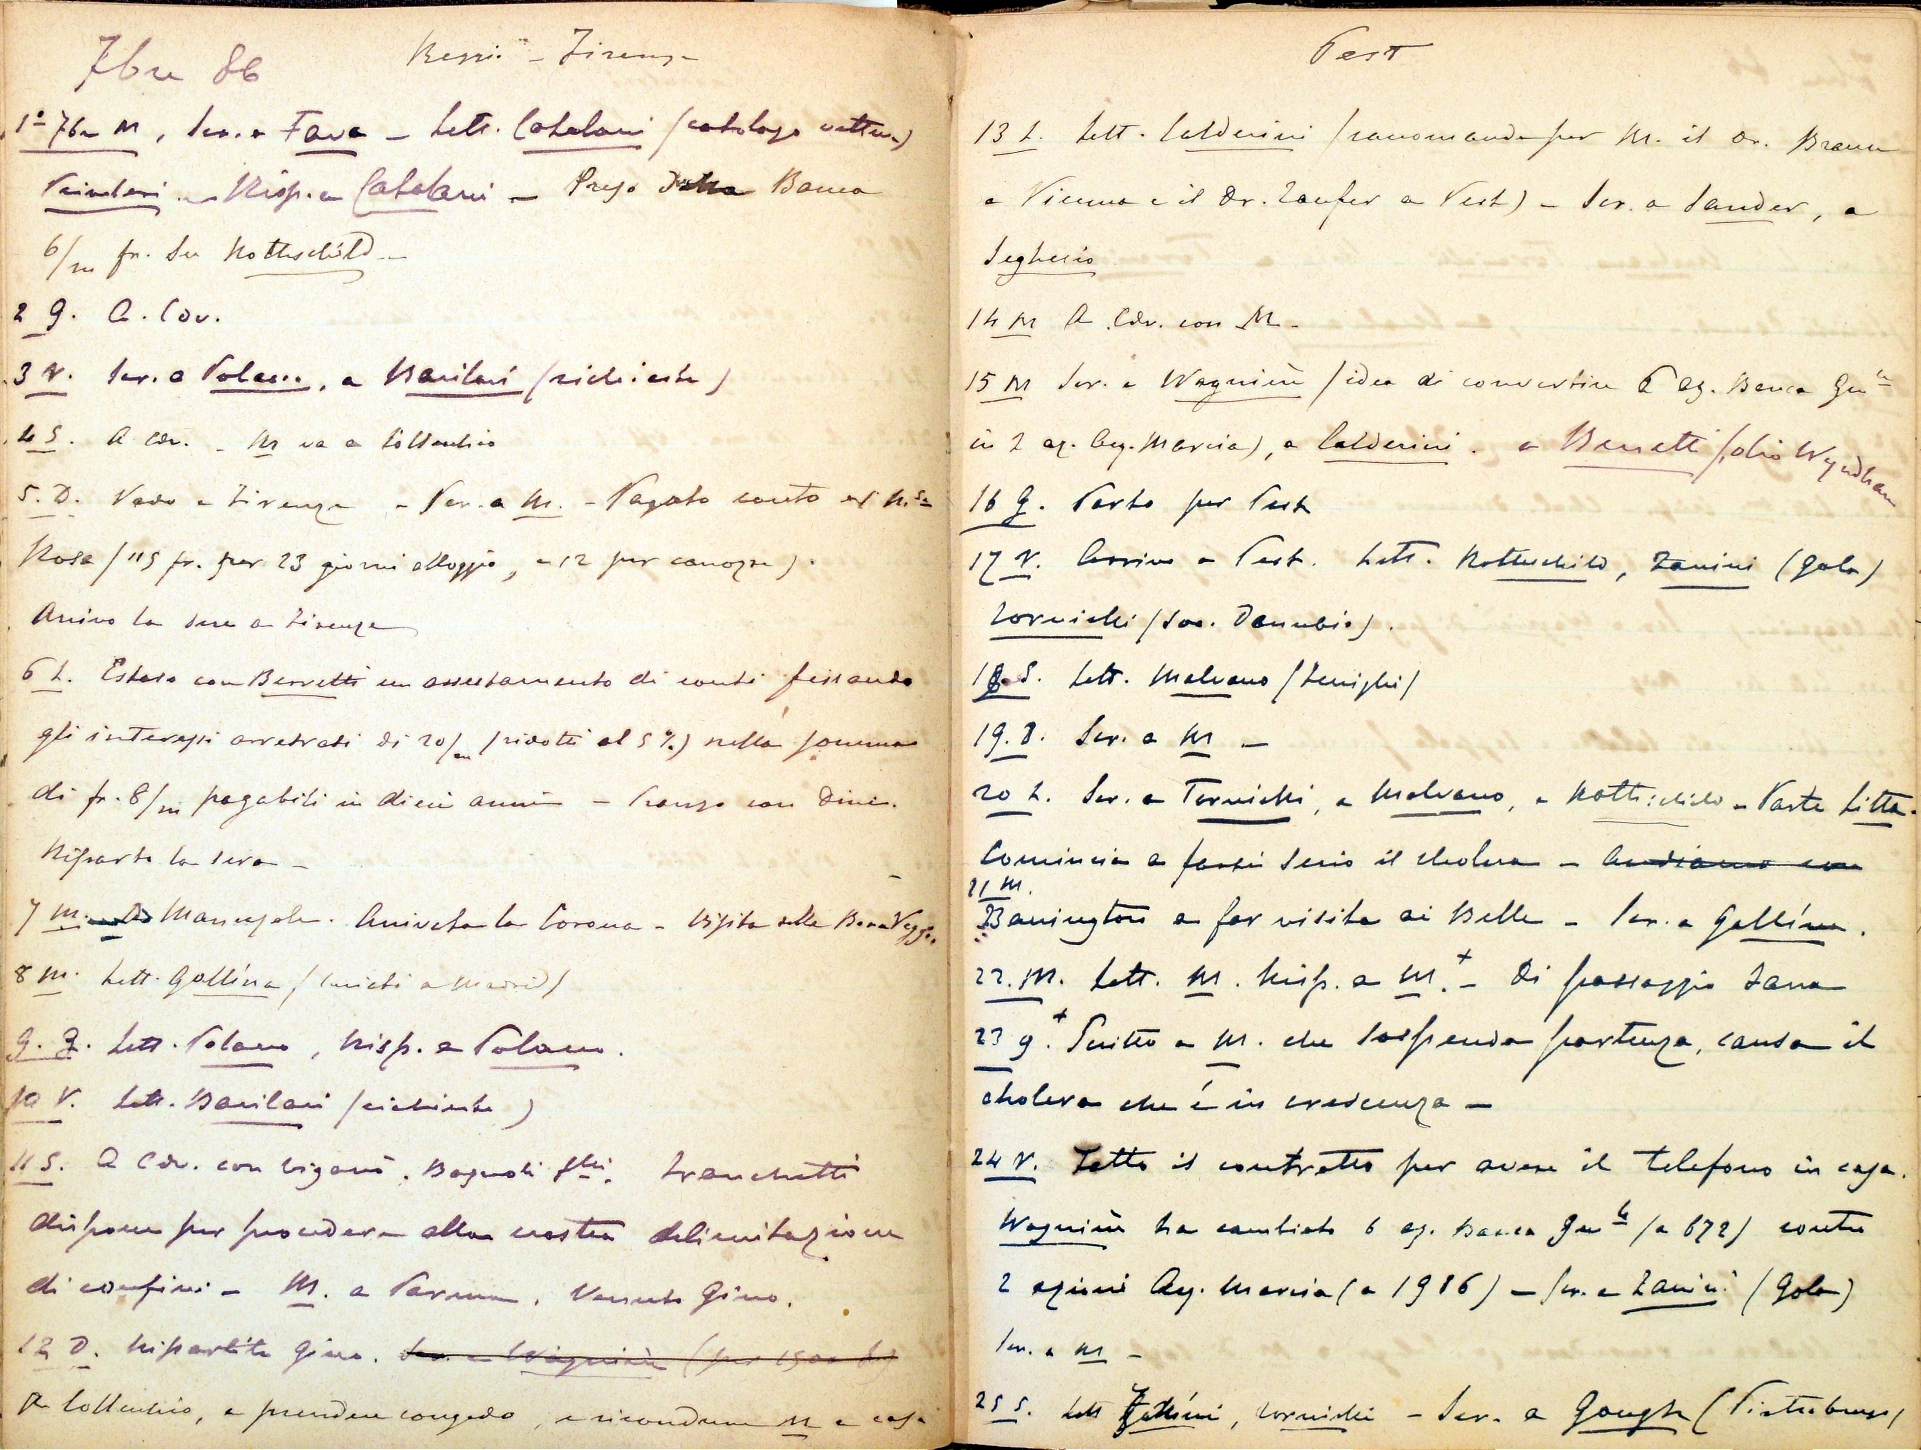 7bre 86
Firenze
1° 7bre M, Scr. a Fava - Lett. Catalani (catalogo vetture)
Risp. a Catalani - Preso Banca
6/m fr. su Rottschild -
2 G. A. Cov.
3 V. Scr. a Polacco, a Barilari (richieste)
4 S. A Cov. - M va a Collecchio
5. D. Vado a Firenze - Scr. a M. - Pagato conto
Rosa (115 fr. per 23 giorni alloggio, e 12 per carrozze).
Arrivo la sera a Firenze
6 L. Esteso con Berretti un assestamento di conti fissando
gli interessi arretrati di 20/m (ridotti al 5%) nella somma
di fr. 8/m pagabili in dieci anni - Pranzo con Dini.
Riparto la sera -
7 M. Arrivata la Corona - Visita alla
8 M. Lett. Gallina ( a Madrid)
9. G. Lett. Polacco, Risp. a Polacco.
10 V. Lett. Barilari (richieste)
11 S. A Cov. con Viganò, Bagnoli Franchetti
dispone per procedere alla nostra delimitazione
di confini - M. a Parma. Venuto Gino.
12 D. Ripartito Gino. Scr. a Wagnière (per 1500 L.)
A Collecchio, a prendere congedo, e ricondurre M a casa
Pest
13 L. Lett. Calderini (raccomanda per M. il Dr. Braun
a Vienna e il Dr. Taufer a Pest) - Scr. a Sander, a
Segherio
14 M A Cov. con M -
15 M Scr. a Wagnière (idea di convertire 6 az. Banca Gen.le
in 2 az. Acq. Marcia), a Calderini. a Berretti (olio Wyndham
16 G. Parto per Pest
17 V. Arrivo a Pest. Lett. Rottschild, Zanini (Gola)
Tornielli (Soc. Danubio).
18 S. Lett. Malvano
19. D. Scr. a M -
20 L. Scr. a Tornielli, a Malvano, a Rottschild - Parte Litta.
Comincia a farsi serio il cholera - Andiamo con
21 M.
Barrington a far visita ai Belle - Scr. a Gallina.
22. M. Lett. M. Risp. a M.+ - Di passaggio Zana
23 G.+ Scritto a M. che sospenda partenza, causa il
cholera che é in crescenza -
24 V. Fatto il contratto per avere il telefono in casa.
Wagnière ha cambiato 6 az. Banca Gen.le (a 672) contro
2 azioni Acq. Marcia (a 1986) - Scr. a Zanini (Gola)
Scr. a M -
25 S. Lett Gallina, Tornielli - Scr. a Gough (Pietroburgo)